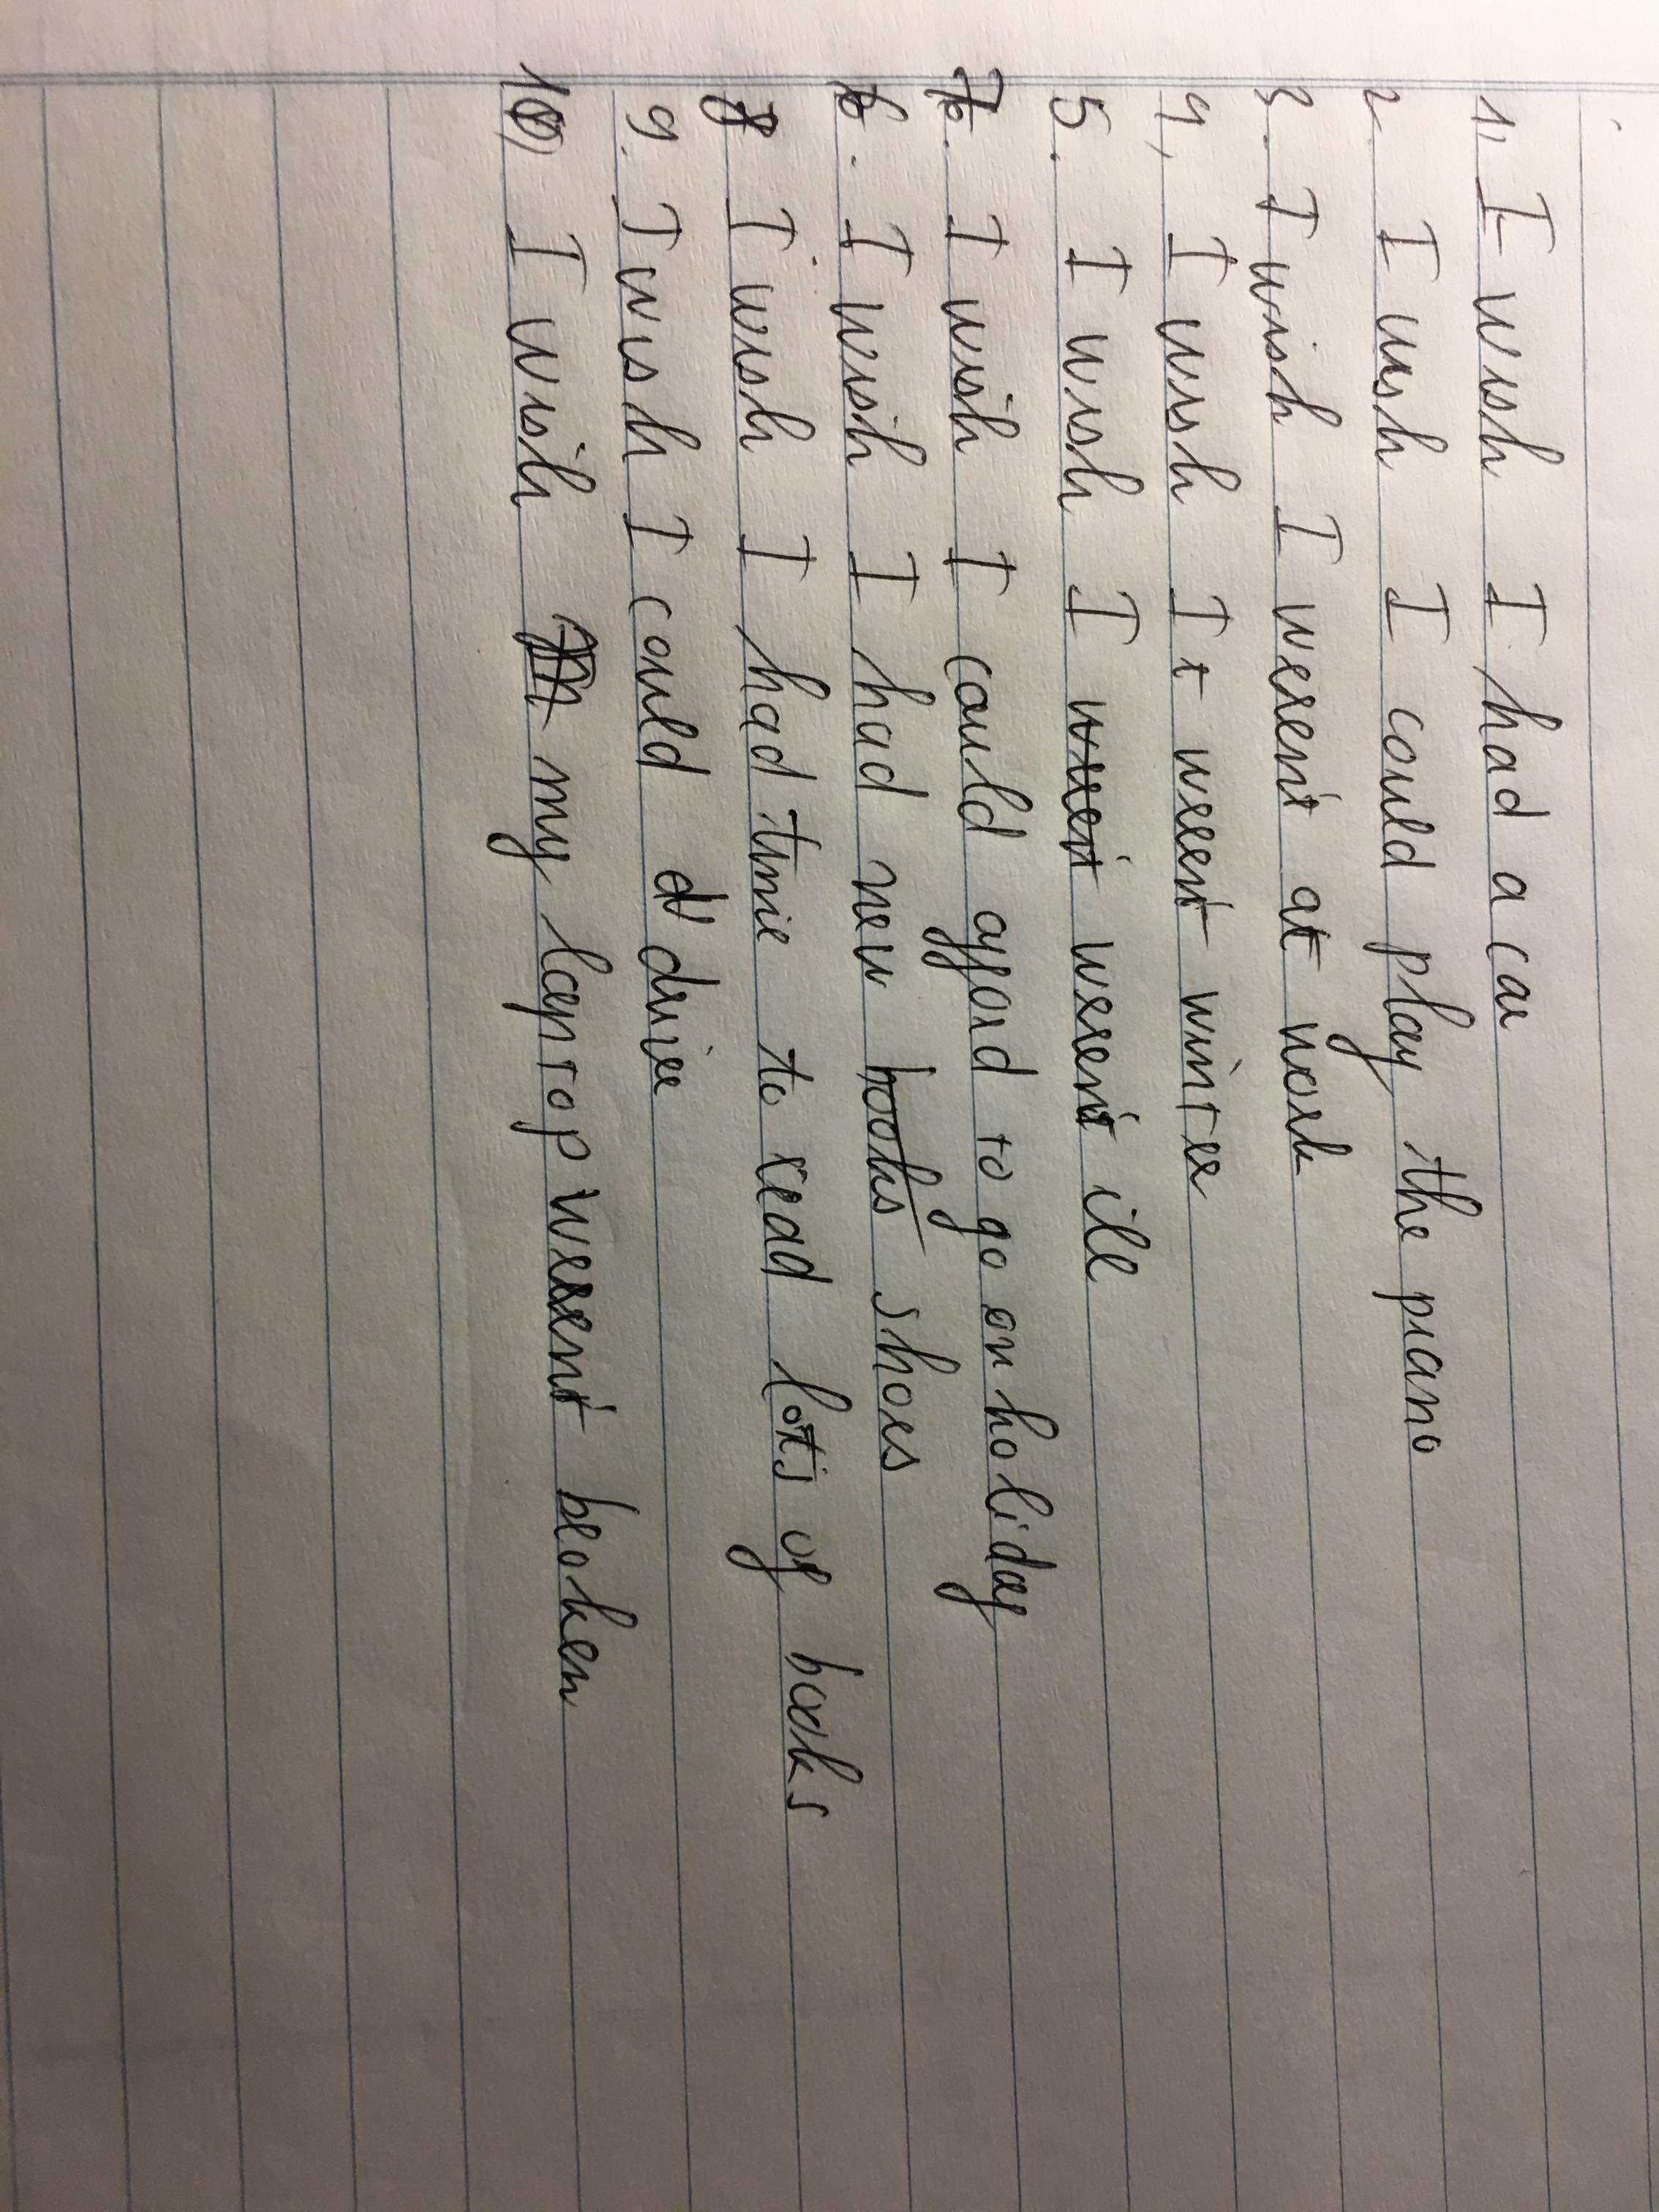 1, I wish I had a car
2. I wish I could play the piano
3. I wish I weren't at work
4, I wish It weren't winter
5. I wish I weren't ill
7. I wish I could afford to go on holiday
6. I wish I had new books shoes
8 I wish I had time to read lots of books
9. I wish I could d drive
10) I wish my laptop weren't broken